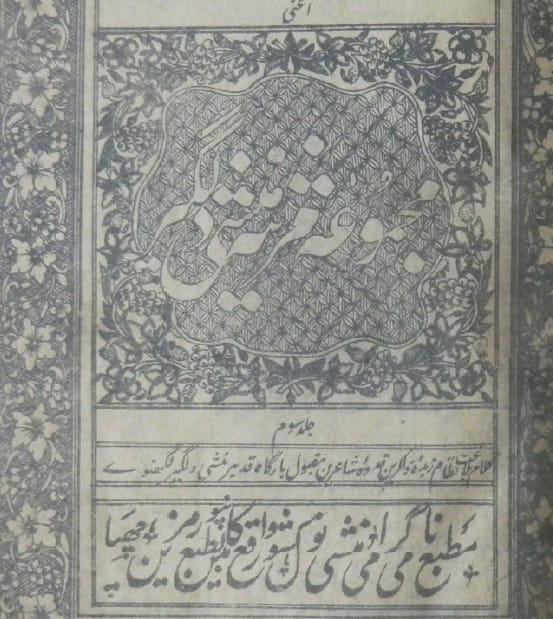 اعنی
مجموعہ مرثیہ منشی دلگیر
جلد سوم
کلام بلاغت نظام زبدۂ ذاکرین قدوۂ شاعرین مقبول بارگاہ قدیر منشی دلگیر لکھنوے
مطبع نامی گرامی منشی نولکشور واقع کانپور مین طبع مزین چھپا